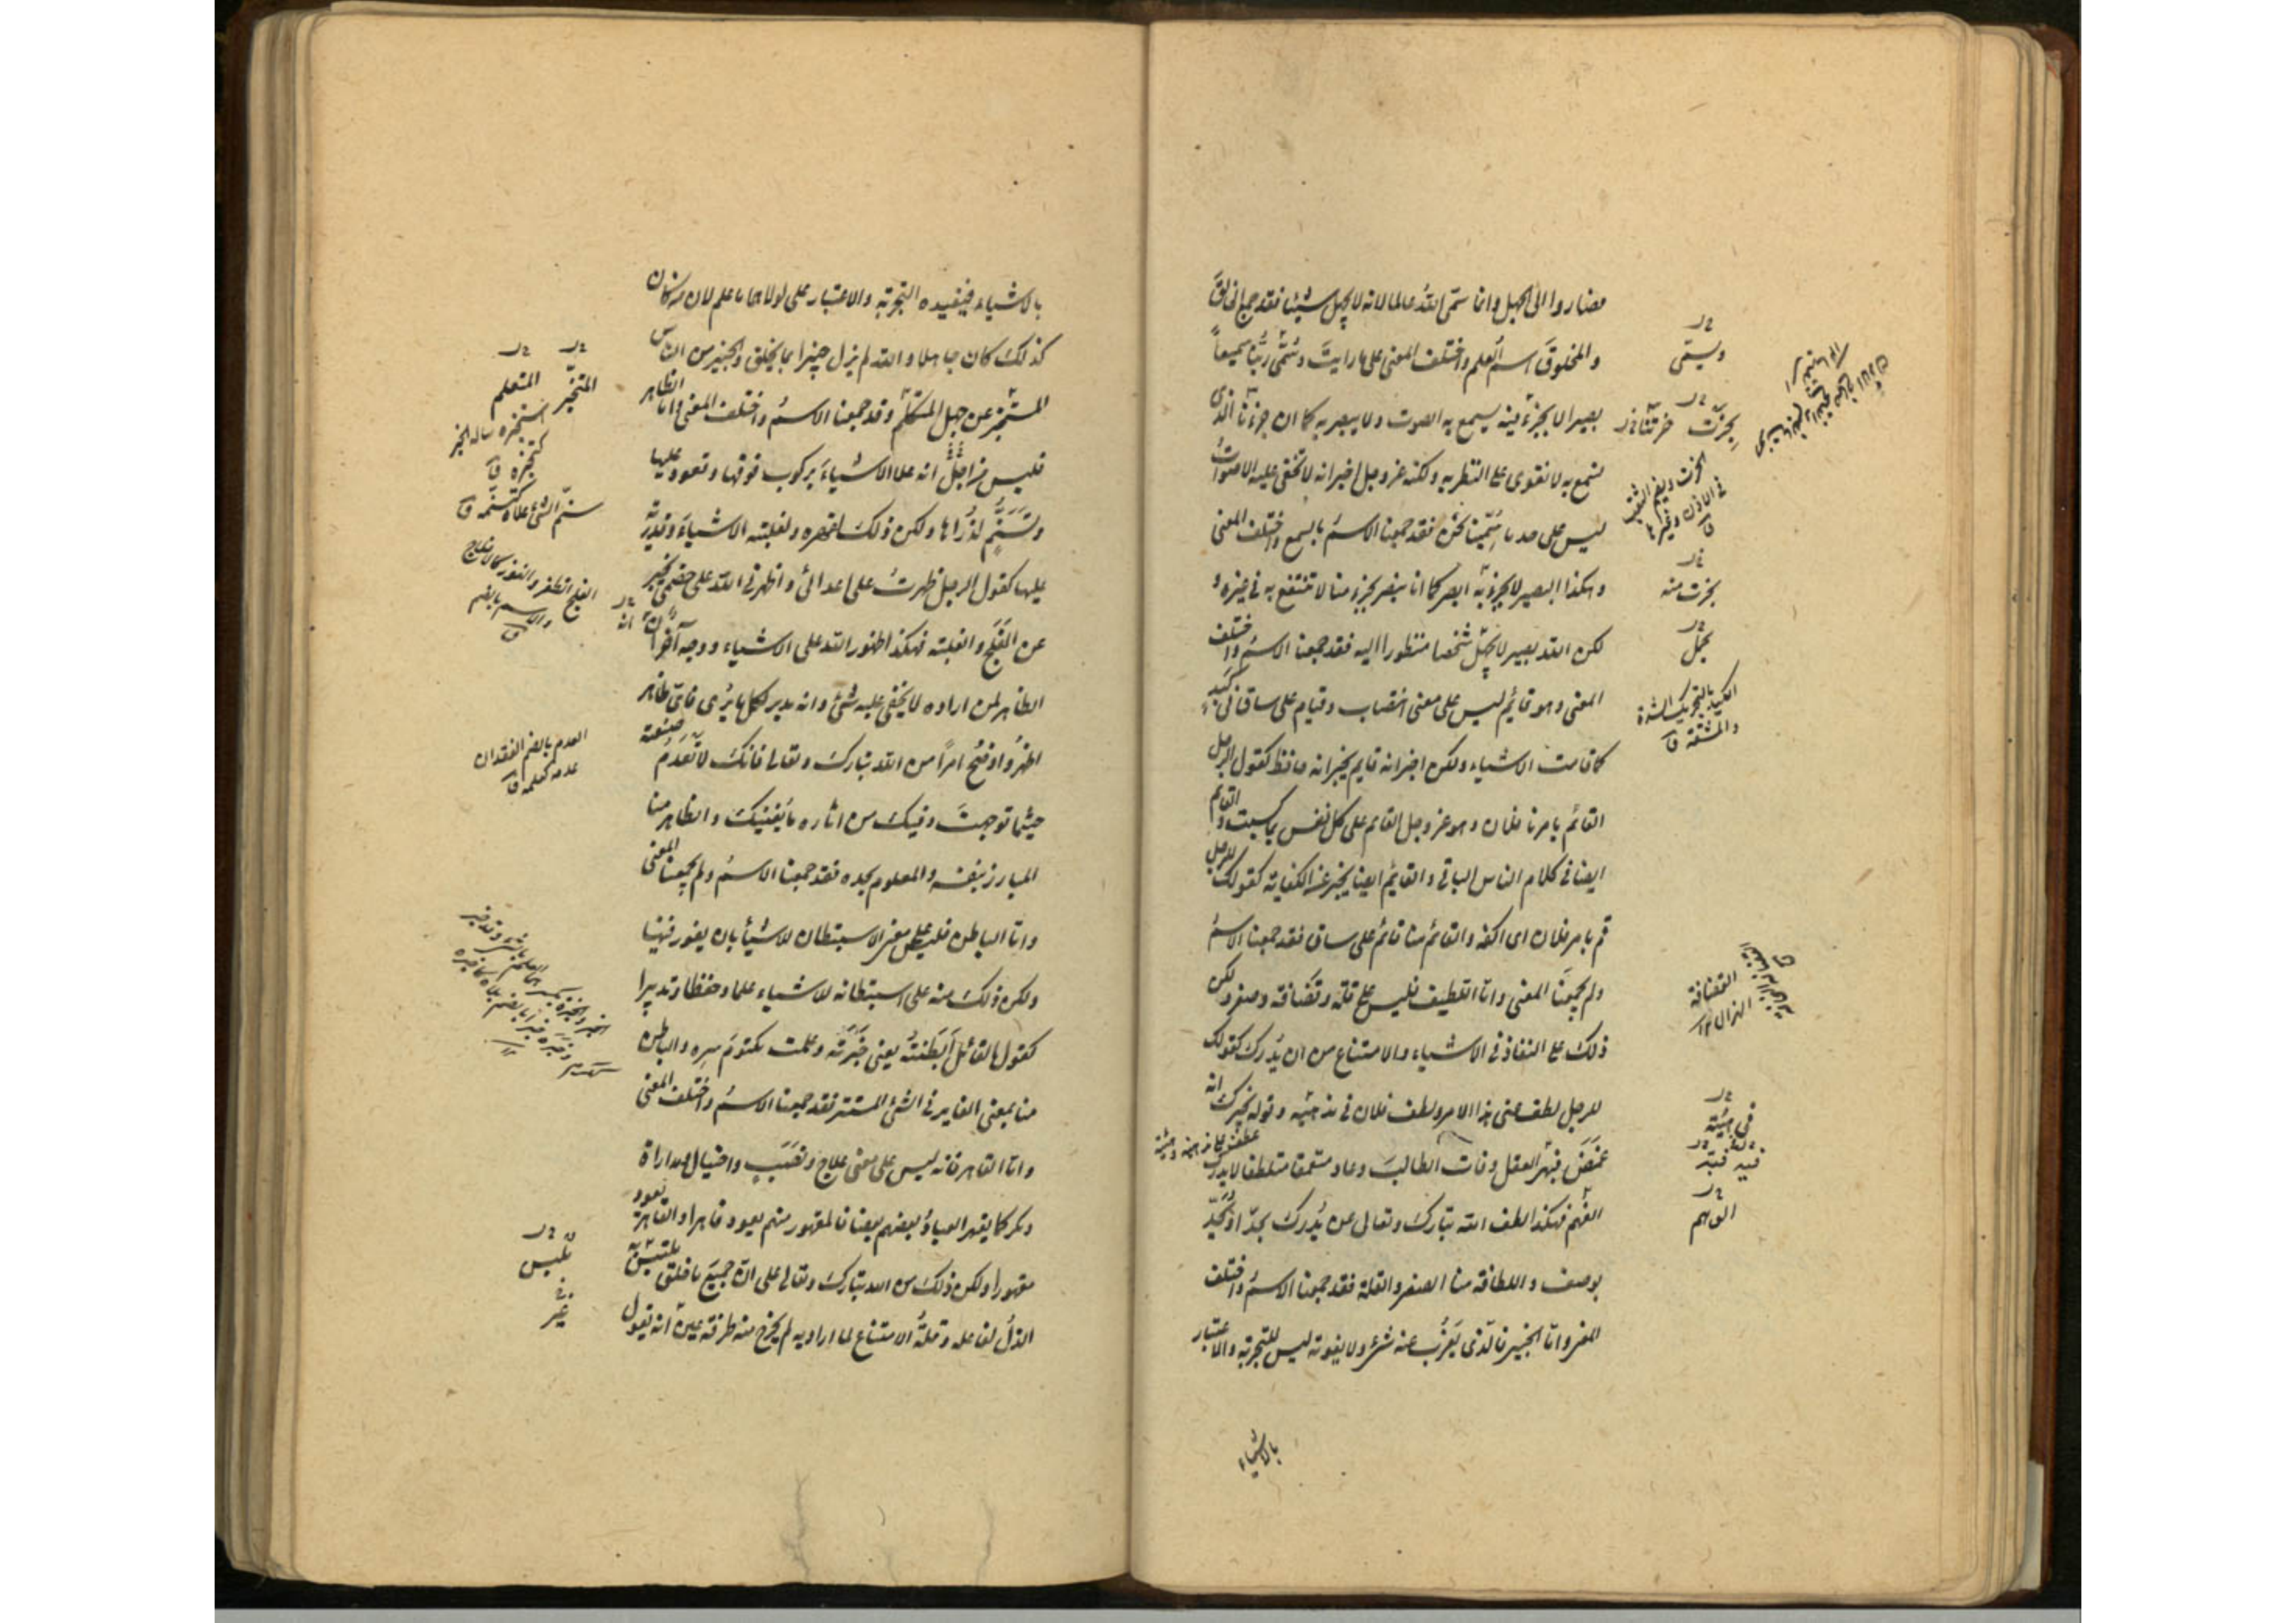 فصاروا الى الجهل وانما سمّى الله عالما لانه لا يجهل شيئا فقد جمع الخالقَ
والمخلوقَ اسم العلم واختلف المعنى على ما رايتَ وسُمّى ربُّنا سميعاً
بصيرا لا بجزء فيه يسمع به الصوت ولا يبصر به كما ان جزءنا الذى
نسمع به لا نقوى على النظر به ولكنه عز وجل اخبر انه لا تخفى عليه الاصواتُ
ليس على حد ما سُمّينا نحن فقد جمعنا الاسمُ بالسميع واختلف المعنى
وهكذا البصير لا بجزء به ابصر كما انا نبصر بجزء منا لا ننتفع به فى غيره و
لكن الله بصير لا يجهل شخصا منظورا اليه فقد جمعنا الاسمُ واختلف
المعنى وهو قائم ليس على معنى انتصاب وقيام على ساق فى كَبَد
كما قامت الاشياء ولكن اخبر انه قايم يخبر انه حافظ كقول الرجل
القائم بامرنا فلان وهو عز وجل القايم على كل نفس بما كسبت والقائم
ايضا فى كلام الناس الباقى والقايم ايضا يخبر عن الكفاية كقولك للرجل
قم بامر فلان اى اكفه والقائم منا قائم على ساق فقد جمعنا الاسمُ
ولم يجمعنا المعنى وانا اللطيف فليس على قلة وقضافة وصغر ولكن
ذلك على النفاذ فى الاشياء والامتناع من ان يُدرك كقولك
للرجل لطف عنى هذا الامر ولطف فلان فى مذهبه وقوله يخبرك انه
غمَضَ فبهر العقل وفات الطالبَ وعاد متعمقا متلطفا لا يدركه
الفهم فهكذا لطف الله تبارك وتعالى عن يُدرك بحدّ او يُحدّ
بوصف واللطافة منا الصغر والقلة فقد جمعنا الاسمُ واختلف
المعنى واما الخبير فالذى لا يعزُب عنه شئ ولا يفوته ليس للتجربة والاعتبار
بالاشياء
ويسمّى
بخرت منه
يحمل
القضافة
الهزال ١٢
فى هيئته
الوهم
بالاشياء فيفيده التجربة والاعتبار على لولاهما ما علم لان من كان
كذلك كان جاهلا والله لم يزل خبيرا بما يخلق والخبير من الناس
المستخبر عن جهل المتكلم وقد جمعنا الاسمُ واختلف المعنى واما الظاهر
فليس من اجل انه علا الاشياءَ بركوب فوقها وقعود عليها
وتسَنُّم لذُراها ولكن ذلك لقهره ولغلبته الاشياءَ وقدرته
عليها كقول الرجل ظهرتُ على اعدائى واظهرنى الله على خصمى يخبر
عن الفَلَج والغلبة فهكذا ظهور الله على الاشياء ووجه آخر انّه
الظاهر لمن اراده لا يخفى عليه شئ وانه مدبر لكل ما يُرى فاىّ ظاهر
اظهرُ واوضحُ امرًا من الله تبارك وتعالى فانك لا تَعدَم صنعته
حيثما توجهتَ وفيك من اثاره ما يُغنيك والظاهر منا
البارز بنفسه والمعلوم بحده فقد جمعنا الاسمُ ولم يجمعنا المعنى
واما الباطن فليس على معنى الاستبطان للاشياء بان يغور فيها
ولكن ذلك منه على استبطانه للاشياء علما وحفظا وتدبيرا
كقول القائل اَبطَنتُه يعنى خَبَرته وعلمت مكتومَ سره والباطن
منا بمعنى الغاير فى الشئ المستتر فقد جمعنا الاسمُ واختلف المعنى
واما القاهر فانه ليس على معنى علاج ونَصَبٍ واحتيال ومداراة
ومكر كما يقهر العبادُ بعضهم بعضا فالمقهور منهم يعود قاهرا والقاهر يعود
مقهورا ولكن ذلك من الله تبارك وتعالى على انّ جميع ما خلق ملتبس به
الذلُ لفاعله وقلةُ الامتناع لما اراد به لم يخرج منه طرفة عين انه يقول
المتخبّر المتعلم
استخبره ساله الخبر
كتخبره ق
سنّم الشئ علاه كتسنّمه ق
الفلج الظفر والفوز كالافلاج
والاسم بالضم
ق
انه
العدم بالضم الفقدان
عدمه كعلمه ق
يلبس